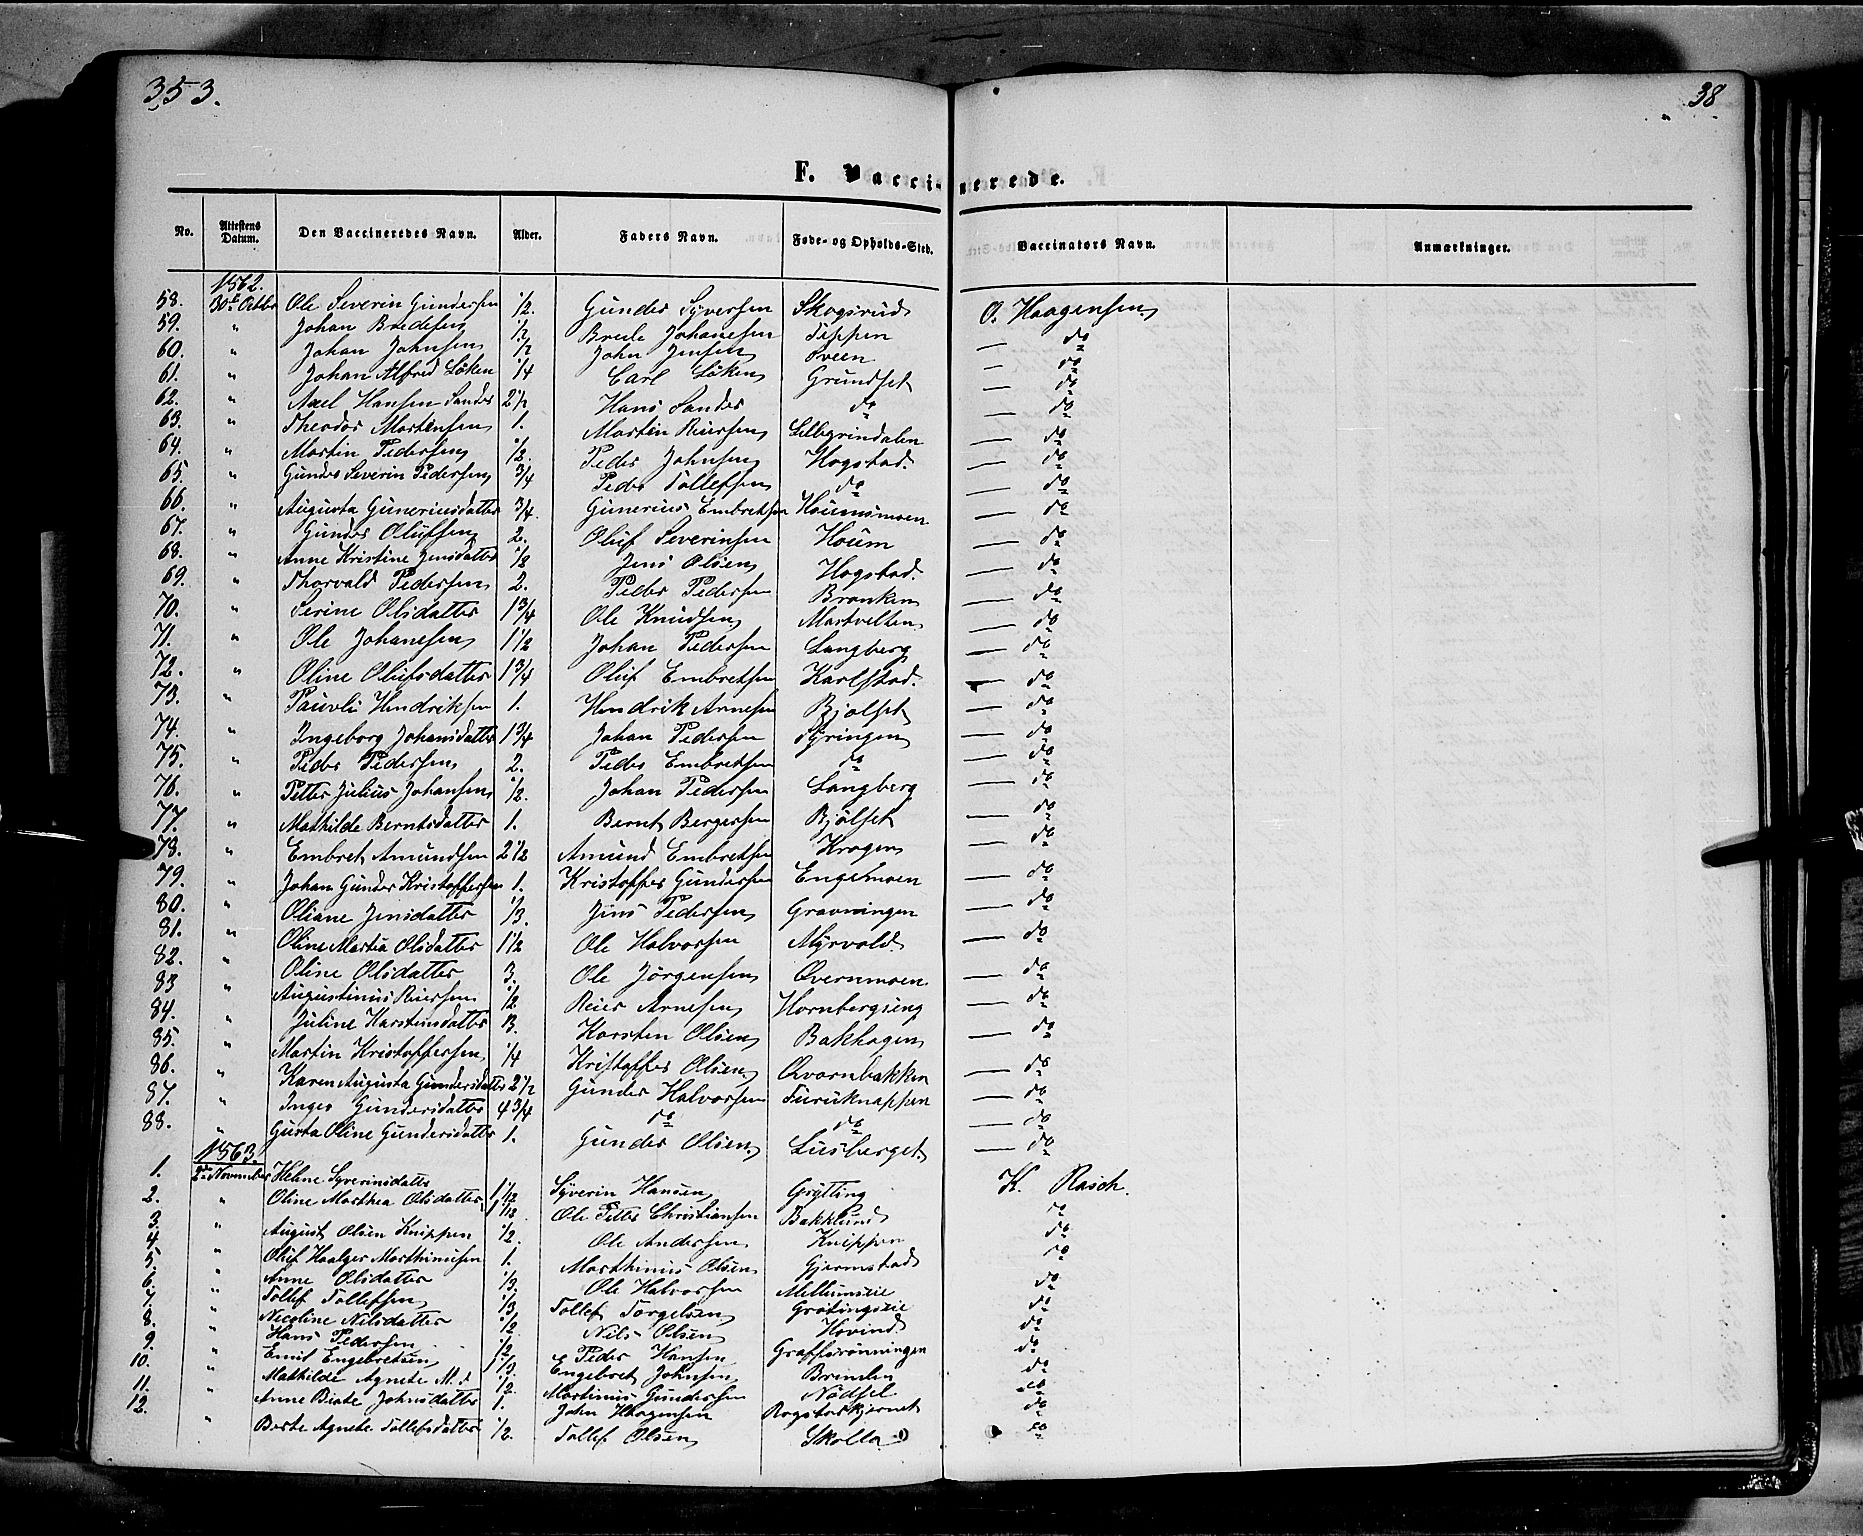 353.
38
F. Vaccinerede.
No. Attestens Datum. Den Vaccineredes Navn. Alder. Faders Navn. Føde- og Opholds-Sted. Vaccinators Navn. Anmærkninger.
1862.
58. 30te Octbr Ole Severin Gundersen 1/2. Gunder Syversen Skogsrud O. Haagensen
59. " Johan Bredesen 1/2 Brede Johanesen Teppen — do
60. " Johan Johnsen 1/2 John Jensen Sveen — do
61. " Johan Alfred Löken 1/4 Carl Löken Grundset — do
62. " Axel Hansen Sander 2 1/2 Hans Sander do — do
63. " Theodor Martinsen 1. Martin Reiersen Lillegrindalen — do
64. " Martin Pedersen 1/2. Peder Johnsen Hogstad. — do
65. " Gunder Severin Pedersen 3/4 Peder Tollefsen do — do
66. " Augusta Guneriusdatter 3/4. Gunerius Embretsen Houmsmoen — do
67. " Gunder Olufsen 2. Oluf Severinsen Houm — do
68. " Anne Kristine Jensdatter 1/8 Jens Olsen Hogstad. — do
69. " Thorvald Pedersen 2. Peder Pedersen Branken — do
70. " Serine Olsdatter 1 3/4 Ole Knudsen Martvelten — do
71. " Ole Johanesen 1 1/2 Johan Pedersen Langberg — do
72. " Oline Olufsdatter 1 3/4 Oluf Embretsen Karlstad. — do
73. " Pauvli Hendriksen 1. Hendrik Arnesen Bjølset — do
74. " Ingeborg Johansdatter 1 3/4 Johan Pedersen Kyringen — do
75. " Peder Pedersen 2. Peder Embretsen do — do
76. " Petter Julius Johansen 1/2. Johan Pedersen Langberg — do
77. " Mathilde Berntsdatter 1. Bernt Bergersen Bjölset — do
78. " Embret Amundsen 2 1/2 Amund Embretsen Kragen — do
79. " Johan Gunder Kristoffersen 1. Kristoffer Gundersen Engelmoen — do
80. " Oliane Jensdatter 1/3. Jens Pedersen Gravningen — do
81. " Oline Martia Olsdatter 1 1/2 Ole Halvorsen Myrvold. — do
82. " Oline Olsdatter 3. Ole Jørgensen Qvernmoen. — do
83 " Augustinus Reiersen 1/2 Reier Arnesen Hornbergseng — do
84. " Juline Karstensdatter 3. Karsten Olsen Bakhagen — do
85. " Martin Kristoffersen 1/4 Kristoffer Olsen. Qvornbakken — do
86. " Karen Augusta Gundersdatter 2 1/2 Gunder Halvorsen Furuknappen — do
87. " Inger Gundersdatter 4 3/4 do do — do
88. " Gusta Oline Gundersdatter 1. Gunder Olsen. Lusberget. — do
1863.
1. 2den November Helene Syverinsdatter 1 1/12 Syverin Hansen Grytting K. Rasch.
2. " Oline Marthea Olsdatter 1 1/12 Ole Petter Christiansen Bakklund do
3. " August Olsen Knippen 1/2. Ole Andersen Knippen do
4. " Oluf Haalger Marthinusen 1. Marthinus Olsen Gjermstad do
5. " Anne Olsdatter 1/3. Ole Halvorsen Mellumseie do
6. " Tollef Tollefsen 1/3 Tollef Torgelsen Grøtingseie do
7. " Nicoline Nilsdatter 1/2 Nils Olsen Hovind. do
8. " Hans Pedersen 1/2 Peder Hansen Graffsrønningen do
9. " Emil Engebretsen 1 1/3. Engebret Johnsen Brenden do
10. " Mathilde Agnete M. d 1/2 Martinus Gundersen Nødsel do
11. " Anne Beate Johnsdatter 1. John Haagensen Rogstadkjernet do
12. " Berte Agnete Tollefsdatter 1/2. Tollef Olsen Skolla do